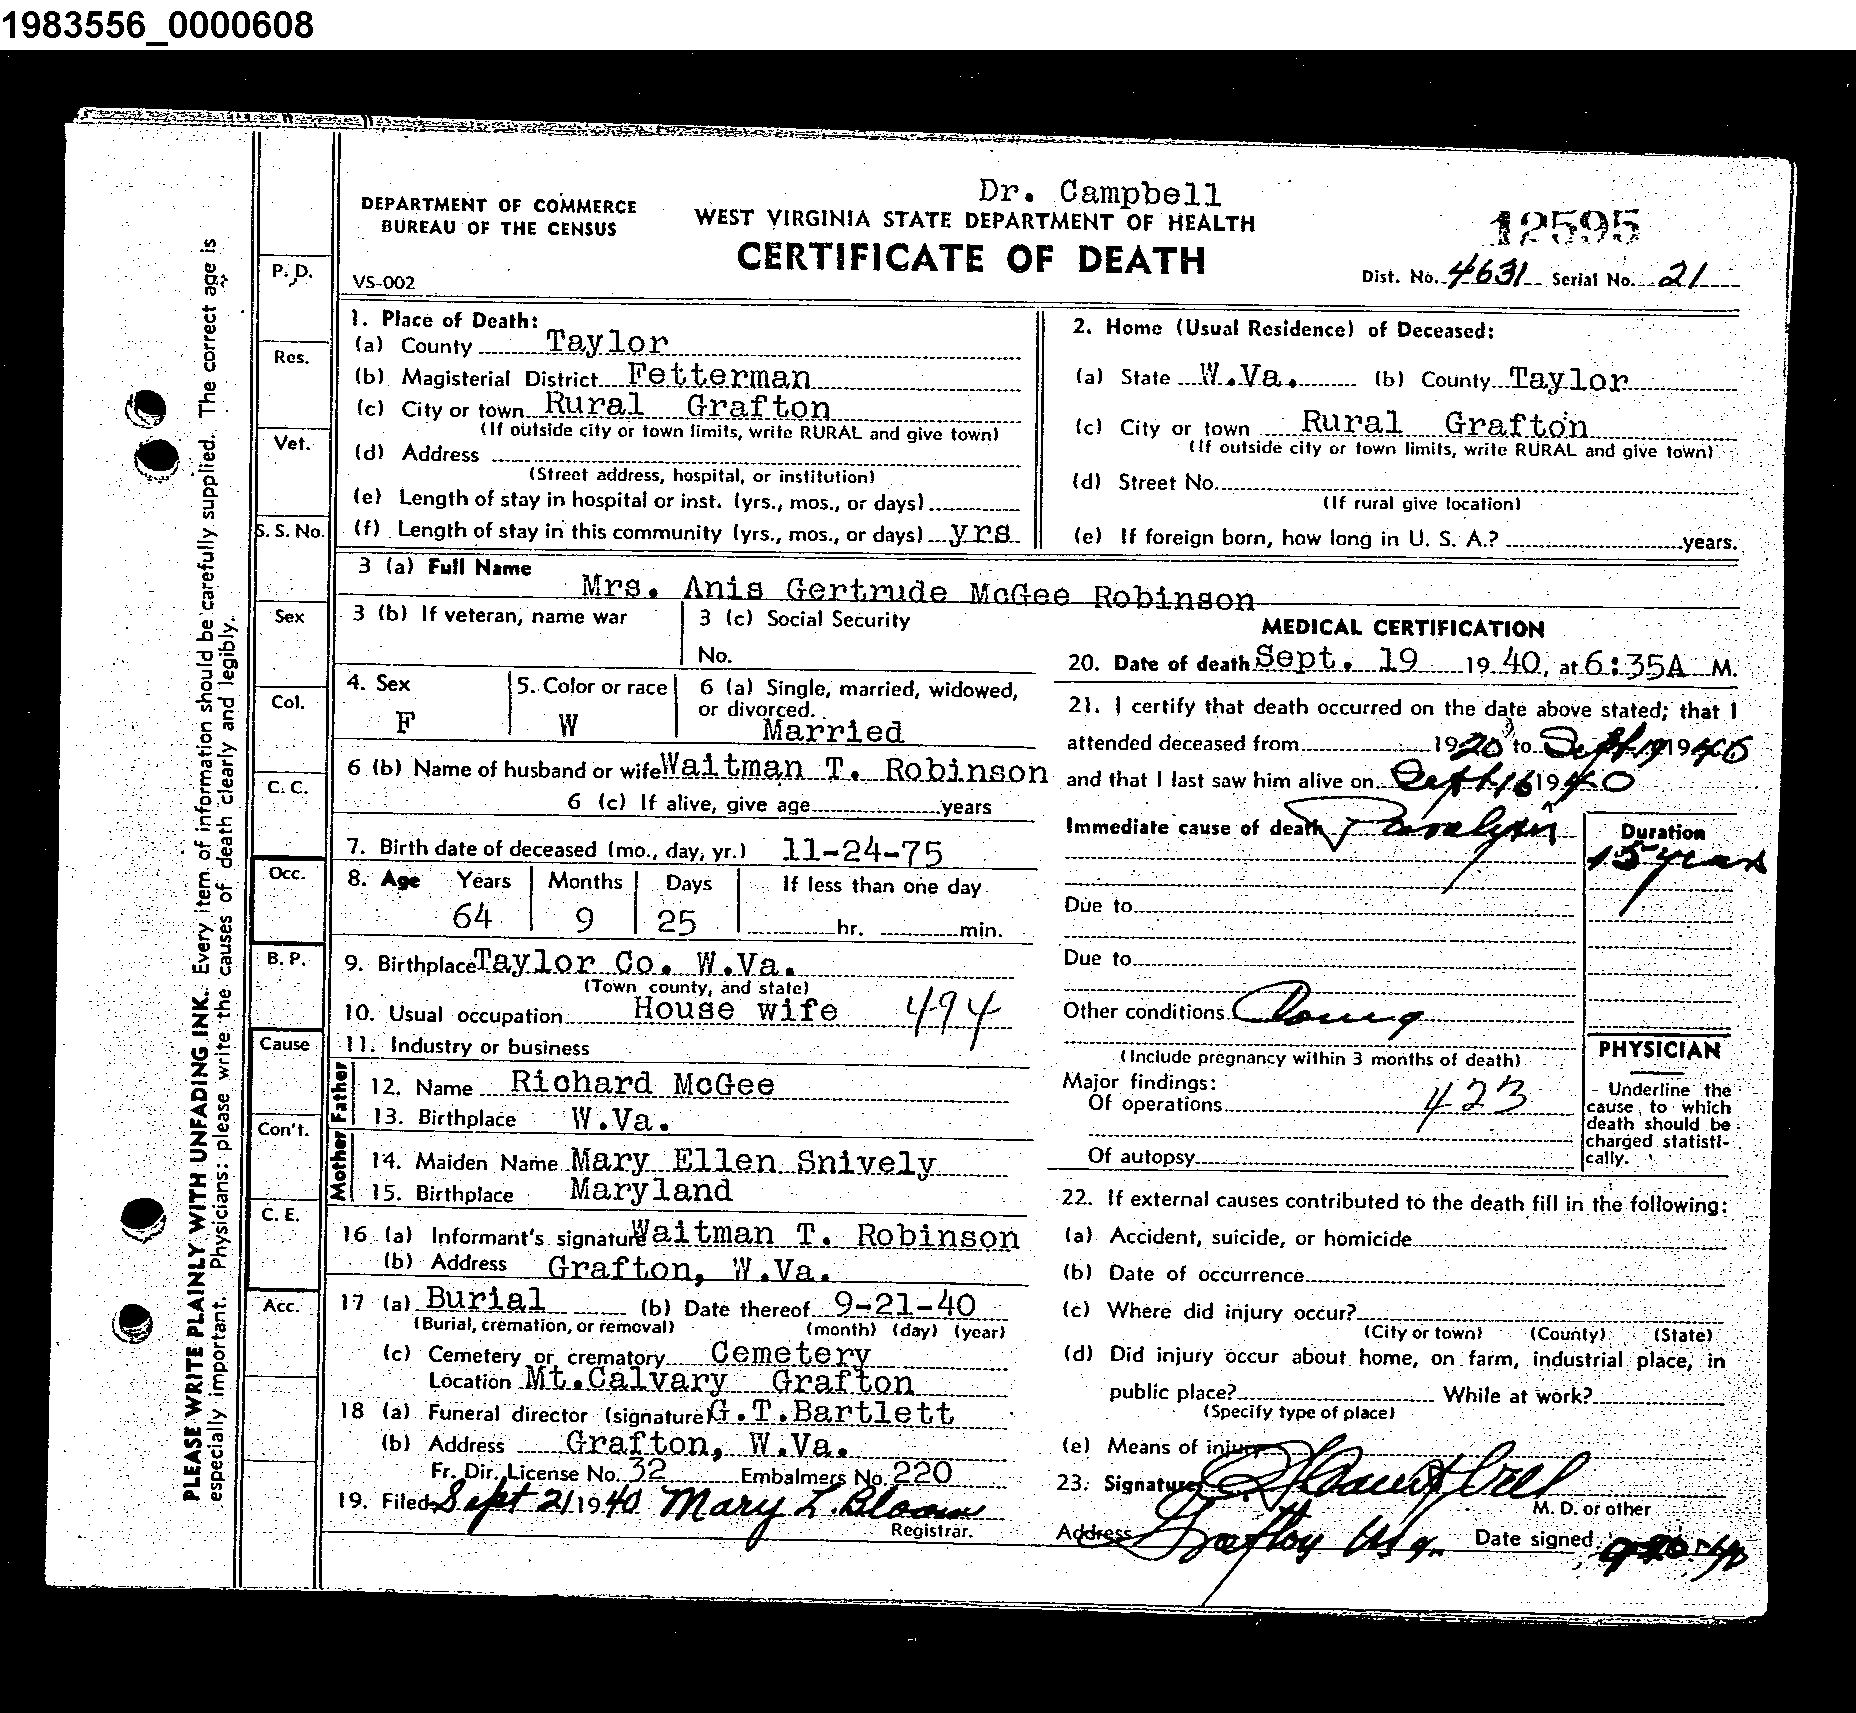 1983556_0000608
Dr. Campbell
DEPARTMENT OF COMMERCE
BUREAU OF THE CENSUS
WEST VIRGINIA STATE DEPARTMENT OF HEALTH
CERTIFICATE OF DEATH
12595
VS-002
Dist. No. 4631 Serial No. 21
PLEASE WRITE PLAINLY WITH UNFADING INK. Every item of information should be carefully supplied. The correct age is
especially important. Physicians: please write the causes of death clearly and legibly.
P. D.
Res.
Vet.
S. S. No.
Sex
Col.
C. C.
Occ.
B. P.
Cause
Con't.
C. E.
Acc.
1. Place of Death:
(a) County Taylor
(b) Magisterial District Fetterman
(c) City or town Rural Grafton
(If outside city or town limits, write RURAL and give town)
(d) Address
(Street address, hospital, or institution)
(e) Length of stay in hospital or inst. (yrs., mos., or days)
(f) Length of stay in this community (yrs., mos., or days) yrs
2. Home (Usual Residence) of Deceased:
(a) State W.Va. (b) County Taylor
(c) City or town Rural Grafton
(If outside city or town limits, write RURAL and give town)
(d) Street No.
(If rural give location)
(e) If foreign born, how long in U. S. A.? years.
3 (a) Full Name Mrs. Anis Gertrude McGee Robinson
3 (b) If veteran, name war
3 (c) Social Security
No.
4. Sex F
5. Color or race W
6 (a) Single, married, widowed,
or divorced. Married
6 (b) Name of husband or wife Waitman T. Robinson
6 (c) If alive, give age years
7. Birth date of deceased (mo., day, yr.) 11-24-75
8. Age Years Months Days If less than one day
64 9 25 hr. min.
9. Birthplace Taylor Co. W.Va.
(Town county, and state)
10. Usual occupation House wife 494
11. Industry or business
Father
12. Name Richard McGee
13. Birthplace W.Va.
Mother
14. Maiden Name Mary Ellen Snively
15. Birthplace Maryland
16 (a) Informant's signature Waitman T. Robinson
(b) Address Grafton, W.Va.
17 (a) Burial (b) Date thereof 9-21-40
(Burial, cremation, or removal) (month) (day) (year)
(c) Cemetery or crematory Cemetery
Location Mt.Calvary Grafton
18 (a) Funeral director (signature) G.T.Bartlett
(b) Address Grafton, W.Va.
Fr. Dir. License No. 32 Embalmers No. 220
19. Filed Sept 21 1940 Mary L. Bloom
Registrar.
MEDICAL CERTIFICATION
20. Date of death Sept. 19 19 40, at 6:35A M.
21. I certify that death occurred on the date above stated; that I
attended deceased from 1920 to Sept 19 1940
and that I last saw him alive on Sept 16 1940
Immediate cause of death Paralysis
Duration
15 years
Due to
Due to
Other conditions
(Include pregnancy within 3 months of death)
Major findings:
Of operations 423
Of autopsy
PHYSICIAN
Underline the
cause to which
death should be
charged statisti-
cally.
22. If external causes contributed to the death fill in the following:
(a) Accident, suicide, or homicide
(b) Date of occurrence
(c) Where did injury occur?
(City or town) (County) (State)
(d) Did injury occur about home, on farm, industrial place, in
public place? While at work?
(Specify type of place)
(e) Means of injury
23. Signature
M. D. or other
Address Grafton Date signed 9-20-40